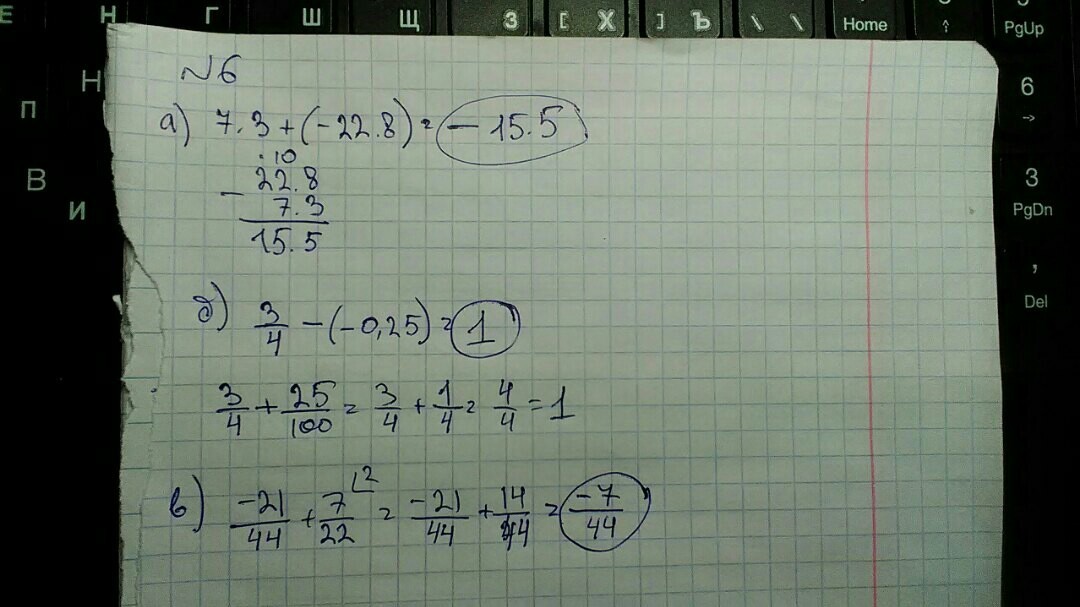 Е Н Г Ш Щ З [ Х ] Ъ \ \ Home ↑ PgUp
Н
П
В
И
6
→
3
PgDn
,
Del
№6
а) 7.3 + (-22.8) = -15.5
. 10
- 22.8
7.3
15.5
б) 3/4 - (-0,25) = 1
3/4 + 25/100 = 3/4 + 1/4 = 4/4 = 1
в) -21/44 + 7/22 ⌊2 = -21/44 + 14/44 = -7/44